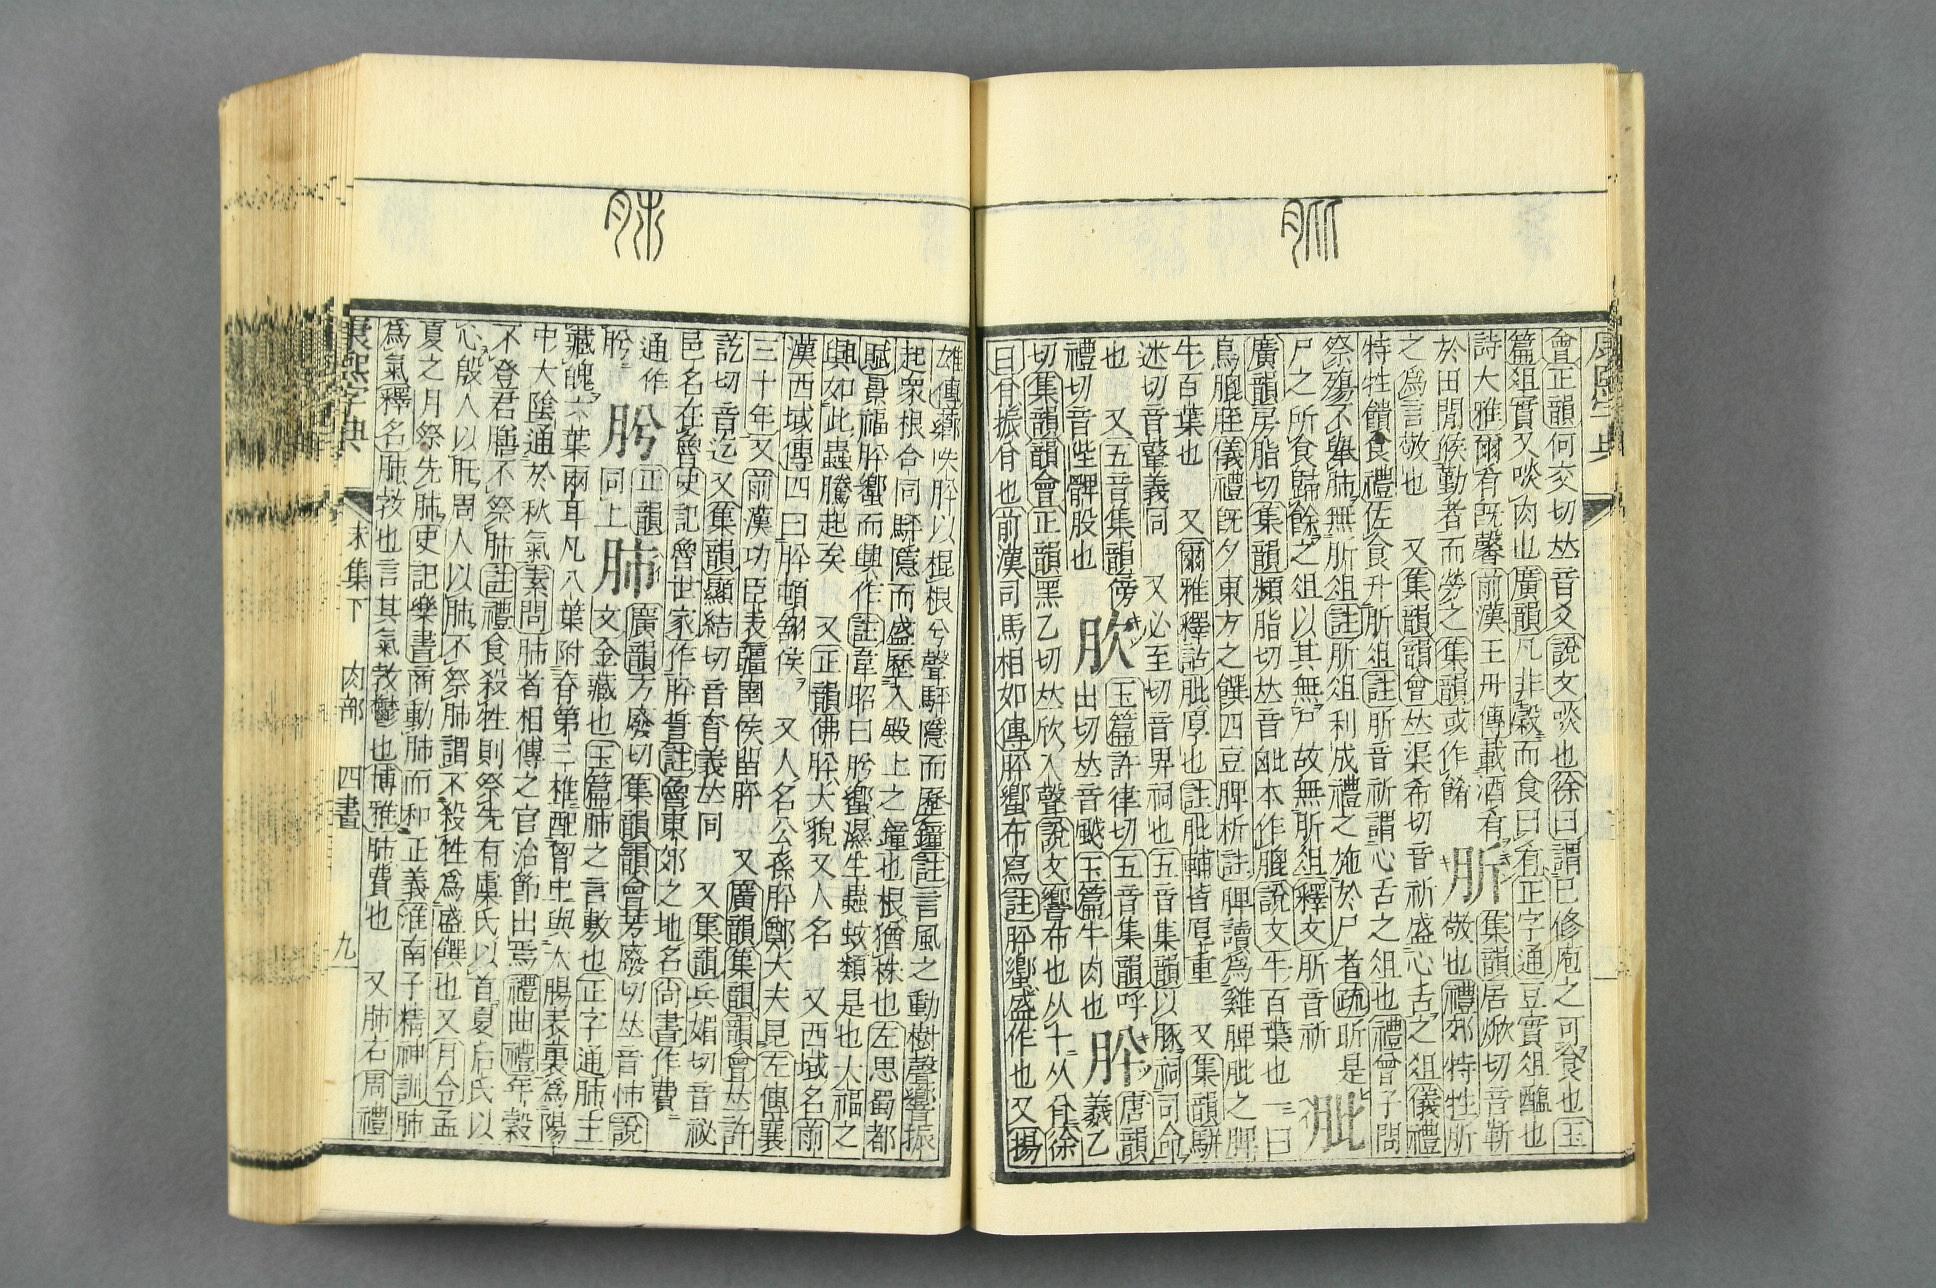 脈
康熙字典
會正韻何交切𠀤音爻說文啖也徐曰謂已修庖之可食也玉
篇俎實又啖肉也廣韻凡非穀而食曰肴正字通豆實俎醢也
詩大雅爾肴旣馨前漢王丹傳載酒肴
於田閒候勤者而勞之集韻或作餚
肵
集韻居焮切音靳
敬也禮郊特牲肵
之爲言敬也 又集韻韻會𠀤渠希切音祈盛心舌之俎儀禮
特牲饋食禮佐食升肵俎註肵音祈謂心舌之俎也禮曾子問
祭殤不舉肺無肵俎註肵俎利成禮之施於尸者疏肵是
尸之所食歸餘之俎以其無尸故無肵俎釋文肵音祈
肶
廣韻房脂切集韻頻脂切𠀤音毗本作膍說文牛百葉也一曰
鳥膍胵儀禮旣夕東方之饌四豆脾析註脾讀爲雞脾肶之脾
牛百葉也 又爾雅釋詁肶厚也註肶輔皆厚重 又集韻騈
迷切音鼙義同 又必至切音畀祠也五音集韻以豚祠司命
也 又五音集韻傍
禮切音㱔髀股也
玉篇許律切五音集韻呼
出切𠀤音䬍玉篇牛肉也
肸
唐韻
羲乙
切集韻韻會正韻黑乙切𠀤欣入聲說文響布也从十从㕢徐
曰㕢振㕢也前漢司馬相如傳肸蠁布寫註肸蠁盛作也又揚
雄傳薌呹肸以棍根兮聲駍隱而歷鐘註言風之動樹聲響振
起衆根合同駍隱而盛歷入殿上之鐘也根猶株也左思蜀都
賦景福肸蠁而興作註韋昭曰肸蠁濕生蟲蚊類是也大福之
興如此蟲騰起矣 又正韻佛肸大貌又人名 又西域名前
漢西域傳四曰肸頓翖侯 又人名公孫肸鄭大夫見左傳襄
三十年又前漢功臣表疆圉侯留肸 又廣韻集韻韻會𠀤許
訖切音迄又集韻顯結切音義𠀤同 又集韻兵媚切音祕
邑名在魯史記魯世家作肸誓註魯東郊之地名尚書作費
通作
肹
肹
正韻
同上
肺
廣韻方廢切集韻韻會芳廢切𠀤音怖說
文金藏也玉篇肺之言敷也正字通肺主
藏魄六葉兩耳凡八葉附脊第三椎配胷中與大腸表裏爲陽
中大陰通於秋氣素問肺者相傅之官治節出焉禮曲禮年穀
不登君膳不祭肺註禮食殺牲則祭先有虞氏以首夏后氏以
心殷人以肝周人以肺不祭肺謂不殺牲爲盛饌也又月令孟
夏之月祭先肺史記樂書商動肺而和正義淮南子精神訓肺
爲氣釋名肺勃也言其氣勃鬱也博雅肺費也 又肺石周禮
康熙字典 未集下 肉部 四畫 九